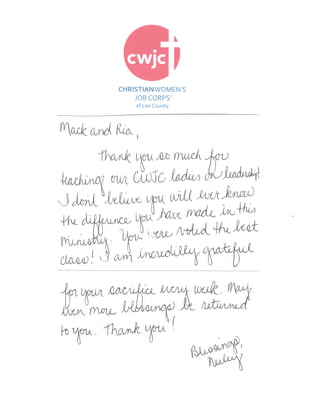 cwjc
CHRISTIANWOMEN'S
JOB CORPS®
of Lee County
Mack and Ria,
Thank you so much for
teaching our CWJC ladies on leadership!
I don't believe you will ever know
the difference you have made in this
ministry. You were voted the best
class! I am incredilly grateful
for your sacrifice every week. May
even more blessings be returned
to you. Thank you!
Blessings,